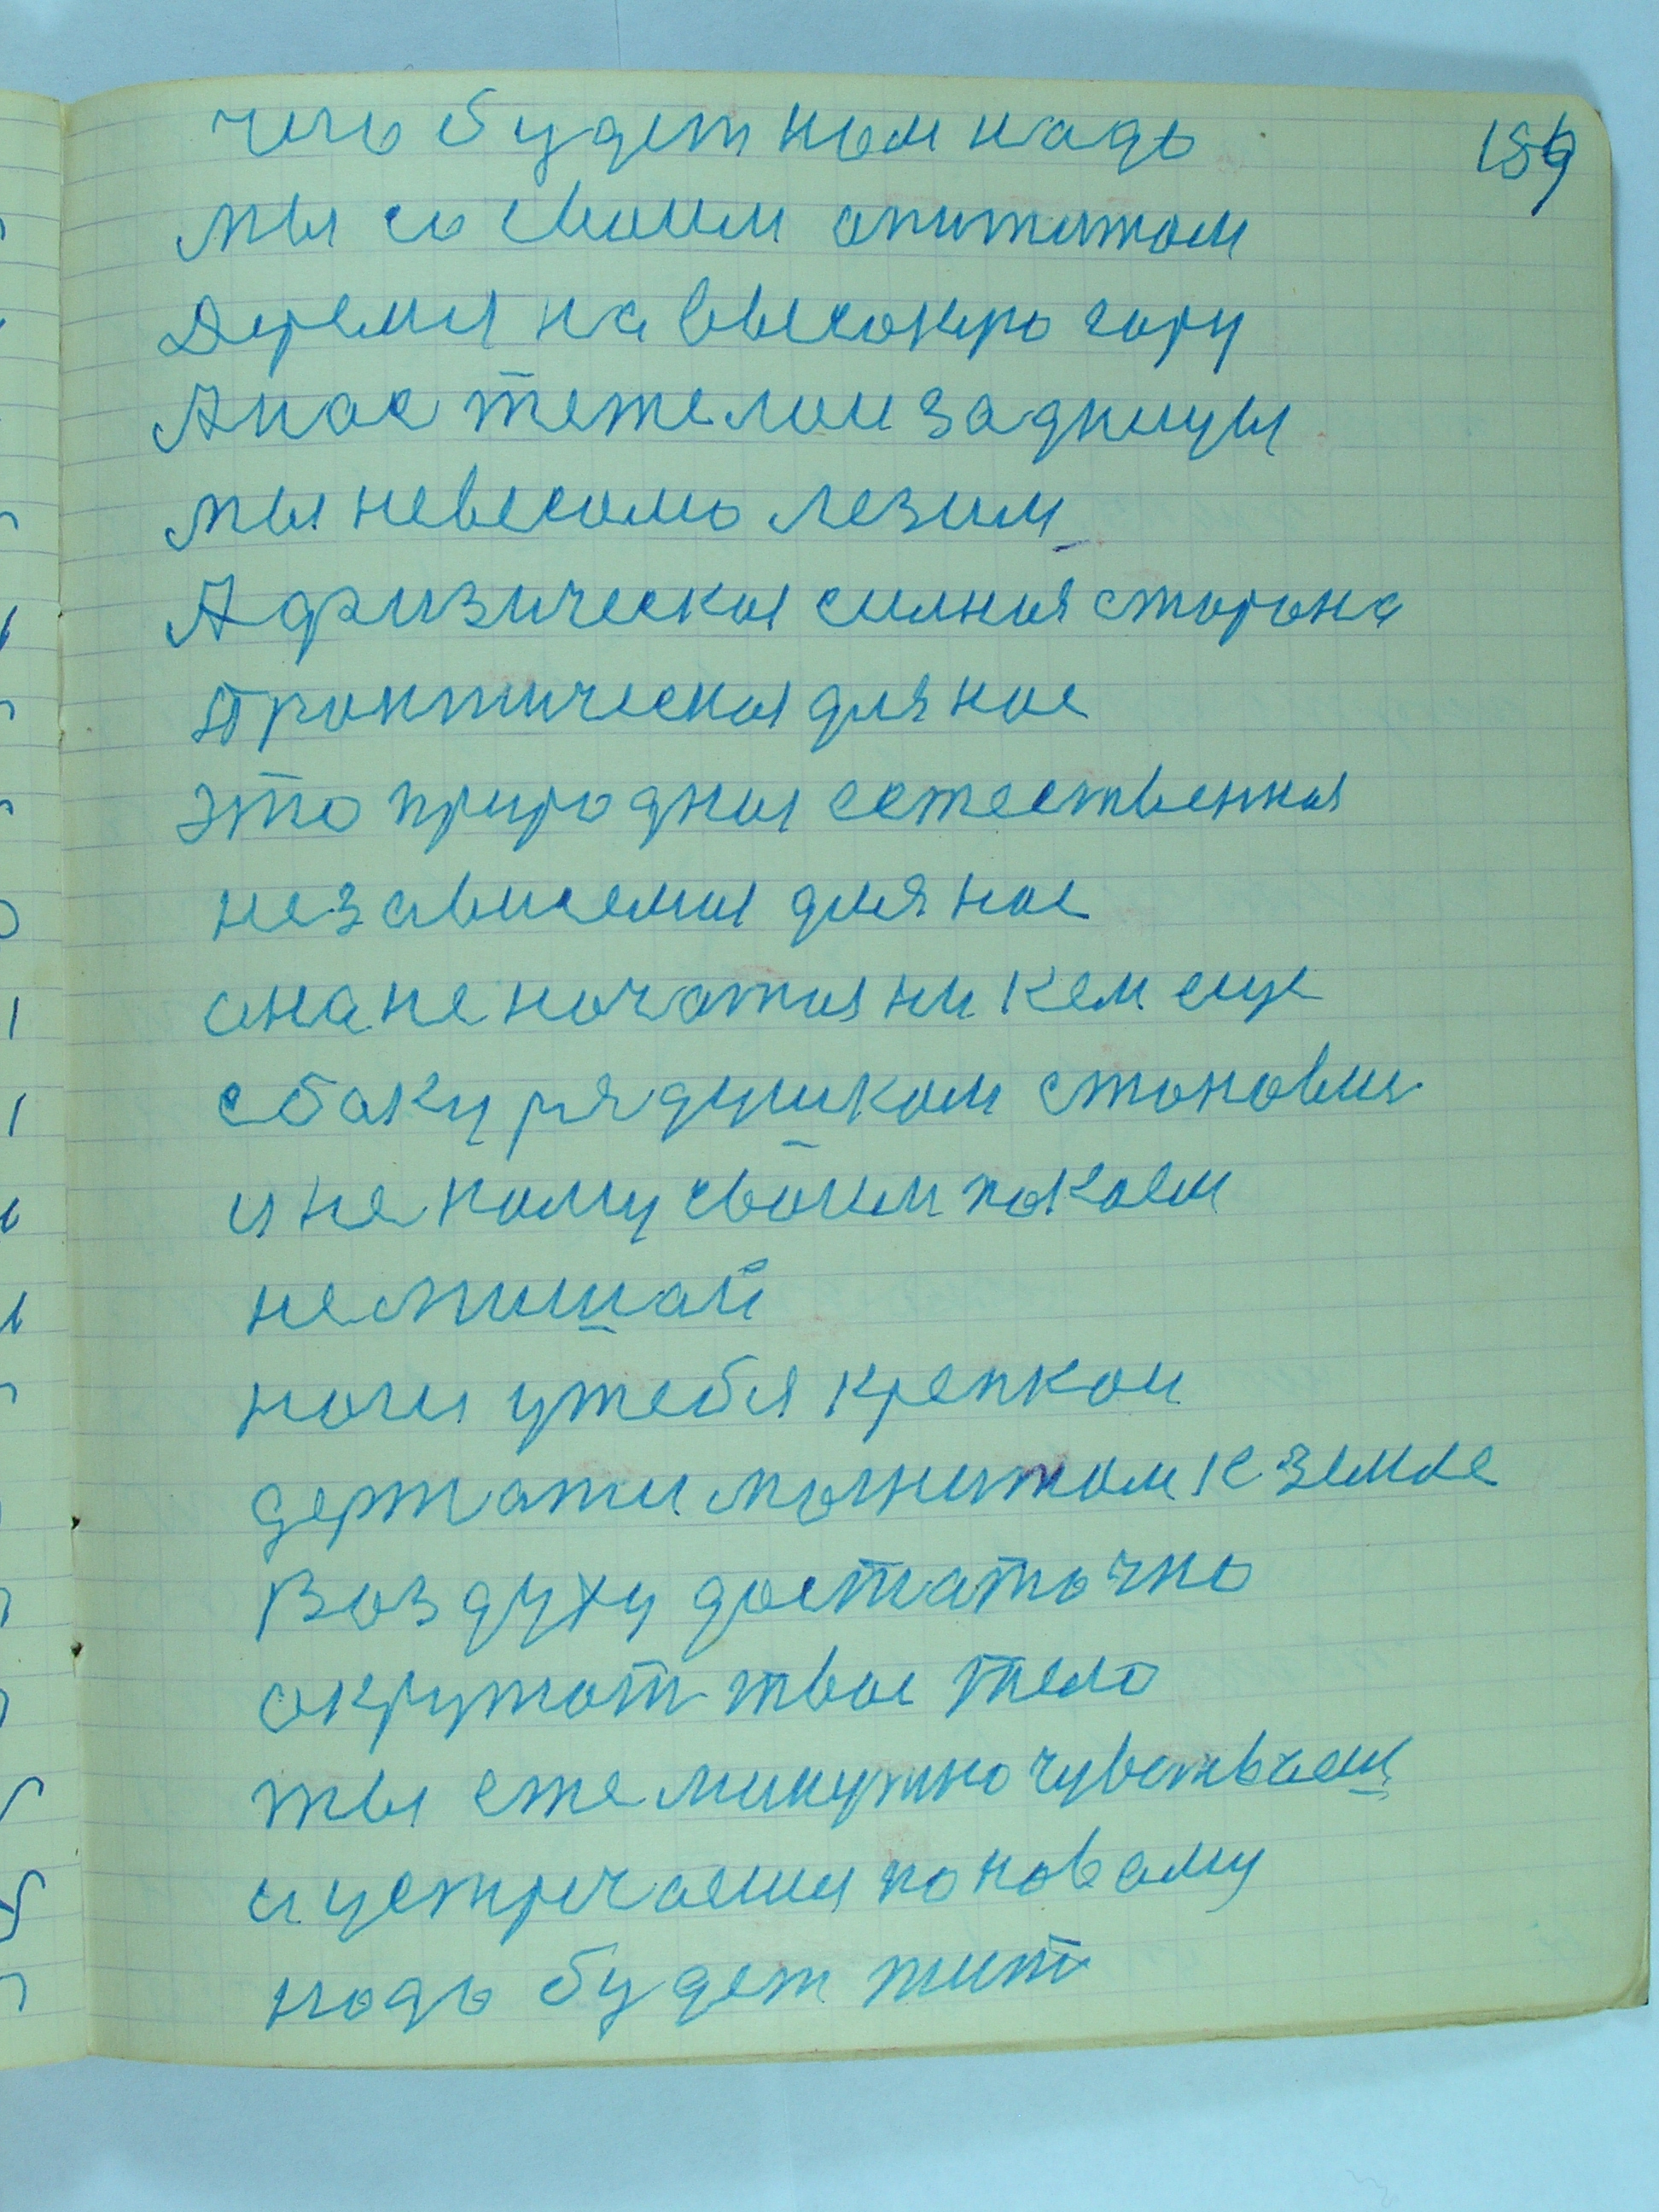 чего будет нам надо
159
мы со своим апититом
Деремся на высокую гору
А нас тежелои задницы
мы невесомо лезим
А физическая силная старана
практическая для нас
это природная естественная
независемая для нас
она не начатая ни кем еще
сбоку рядушком становис
и не кому своим покоем
не мишай
ноги у тебя крепкои
держати магнитом к земле
Воздуху достаточно
окружат твое тело
ты ежеминутно чувстваеш
и устричаешя по новаму
надо будет жит